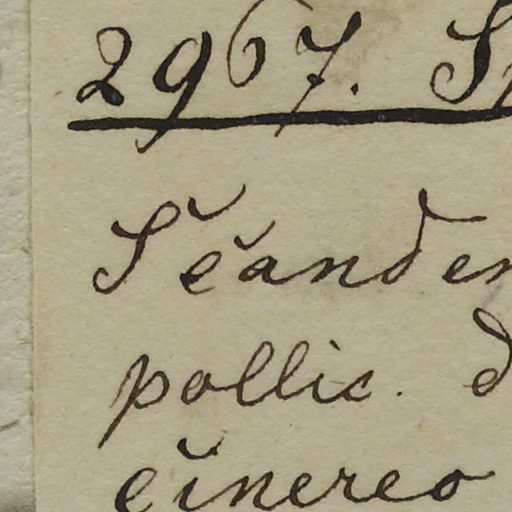 2967. Sp
Scanden
pollic. d
cinereo